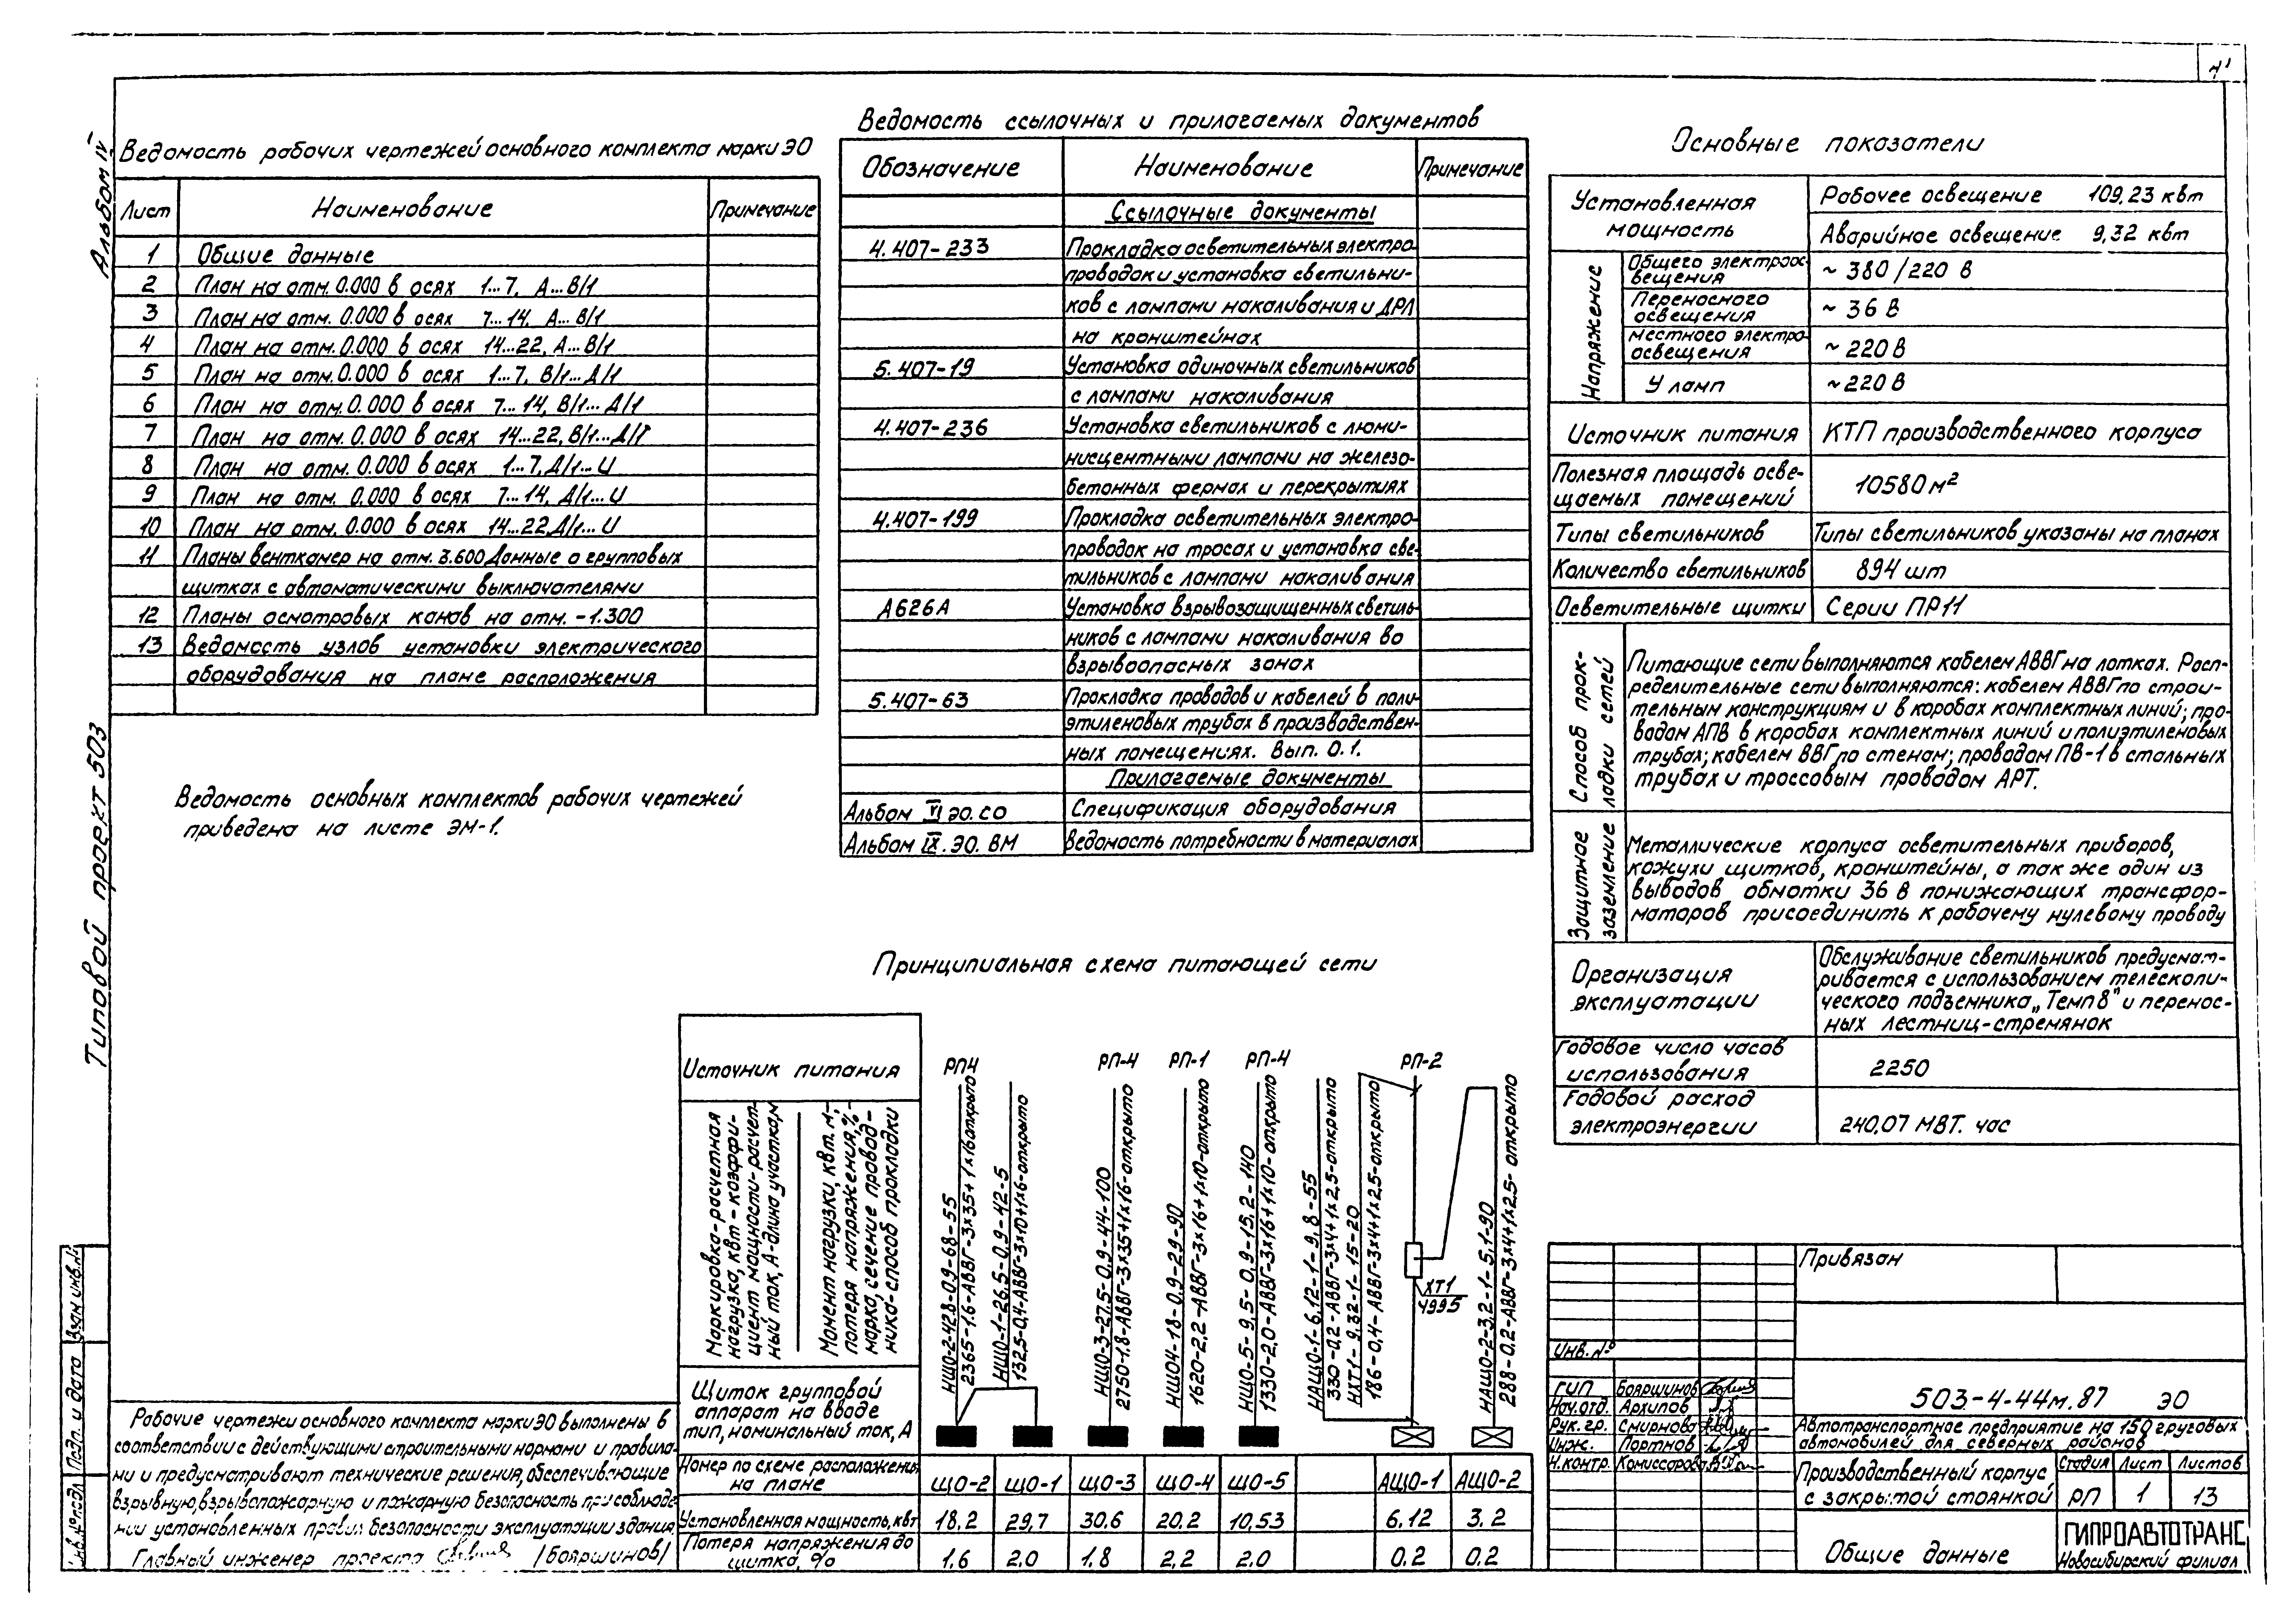 Альбом IV
Типовой проект 503
Ведомость рабочих чертежей основного комплекта марки ЭО
Лист Наименование Примечание
1 Общие данные
2 План на отм. 0.000 в осях 1...7, А...В/1
3 План на отм. 0.000 в осях 7...14, А...В/1
4 План на отм. 0.000 в осях 14...22, А...В/1
5 План на отм. 0.000 в осях 1...7, В/1...Д/1
6 План на отм. 0.000 в осях 7...14, В/1...Д/1
7 План на отм. 0.000 в осях 14...22, В/1...Д/1
8 План на отм. 0.000 в осях 1...7, Д/1...И
9 План на отм. 0.000 в осях 7...14, Д/1...И
10 План на отм. 0.000 в осях 14...22, Д/1...И
11 Планы венткамер на отм. 3.600 Данные о групповых
щитках с автоматическими выключателями
12 Планы осмотровых канав на отм. -1.300
13 Ведомость узлов установки электрического
оборудования на плане расположения
Ведомость основных комплектов рабочих чертежей
приведена на листе ЭМ-1.
Ведомость ссылочных и прилагаемых документов
Обозначение Наименование Примечание
Ссылочные документы
4.407-233 Прокладка осветительных электро-
проводок и установка светильни-
ков с лампами накаливания и ДРЛ
на кронштейнах
5.407-19 Установка одиночных светильников
с лампами накаливания
4.407-236 Установка светильников с люми-
нисцентными лампами на железо-
бетонных фермах и перекрытиях
4.407-199 Прокладка осветительных электро-
проводок на тросах и установка све-
тильников с лампами накаливания
А626А Установка взрывозащищенных светиль-
ников с лампами накаливания во
взрывоопасных зонах
5.407-63 Прокладка проводов и кабелей в поли-
этиленовых трубах в производствен-
ных помещениях. Вып. 0.1.
Прилагаемые документы
Альбом VI ЭО.СО Спецификация оборудования
Альбом IX.ЭО.ВМ Ведомость потребности в материалах
Основные показатели
Установленная мощность
Рабочее освещение 109,23 квт
Аварийное освещение 9,32 квт
Напряжение
Общего электроос-
вещения ~ 380/220 В
Переносного
освещения ~ 36 В
местного электро-
освещения ~ 220 В
У ламп ~ 220 В
Источник питания КТП производственного корпуса
Полезная площадь осве-
щаемых помещений 10580 м²
Типы светильников Типы светильников указаны на планах
Количество светильников 894 шт
Осветительные щитки Серии ПР11
Способ прок-
ладки сетей
Питающие сети выполняются кабелем АВВГ на лотках. Расп-
ределительные сети выполняются: кабелем АВВГ по строи-
тельным конструкциям и в коробах комплектных линий; про-
водам АПВ в коробах комплектных линий и полиэтиленовых
трубах; кабелем ВВГ по стенам; проводам ПВ-1 в стальных
трубах и троссовым проводам АРТ.
Защитное
заземление
Металлические корпуса осветительных приборов,
кожухи щитков, кронштейны, а так же один из
выводов обмотки 36 В понижающих трансфор-
маторов присоединить к рабочему нулевому проводу
Организация
эксплуатации
Обслуживание светильников предусмат-
ривается с использованием телескопи-
ческого подъемника „Темп 8" и перенос-
ных лестниц-стремянок
Годовое число часов
использования 2250
Годовой расход
электроэнергии 240,07 МВТ. час
Принципиальная схема питающей сети
Источник питания РП4 РП-4 РП-1 РП-4 РП-2
Маркировка-расчетная
нагрузка, квт - коэффи-
циент мощности-расчет-
ный ток, А-длина участка, м
Момент нагрузки, квт. м-
потеря напряжения, %-
марка, сечение провод-
ника-способ прокладки
НЩО-2-42.8-0,9-68-55
2365-1,6-АВВГ-3х35+1х16 открыто
НЩО-1-26,5-0,9-42-5
132,5-0,4-АВВГ-3х10+1х6-открыто
НЩО-3-27,5-0,9-44-100
2750-1,8-АВВГ-3х35+1х16-открыто
НЩО4-18-0,9-29-90
1620-2,2-АВВГ-3х16+1х10-открыто
НЩО-5-9,5-0,9-15,2-140
1330-2,0-АВВГ-3х16+1х10-открыто
НАЩО-1-6,12-1-9,8-55
330-0,2-АВВГ-3х4+1х2,5-открыто
НХТ1-9,32-1-15-20
186-0,4-АВВГ-3х4+1х2,5-открыто
ХТ1
У995
НАЩО-2-3,2-1-5,1-90
288-0,2-АВВГ-3х4+1х2,5-открыто
Щиток групповой
аппарат на вводе
тип, номинальный ток, А
Номер по схеме расположены
на плане ЩО-2 ЩО-1 ЩО-3 ЩО-4 ЩО-5 АЩО-1 АЩО-2
Установленная мощность, квт 18,2 29,7 30,6 20,2 10,53 6.12 3.2
Потеря напряжения до
щитка, % 1,6 2,0 1,8 2,2 2.0 0.2 0.2
Рабочие чертежи основного комплекта марки ЭО выполнены в
соответствии с действующими строительными нормами и правила-
ми и предусматривают технические решения, обеспечивающие
взрывную, взрывопожарную и пожарную безопасность при соблюде-
нии установленных правил безопасности эксплуатации здания.
Главный инженер проекта /бояршинов/
Взам инв. №
Подп. и дата
Инв. № подл
Привязан
Инв. №
ГИП Бояршинов
Нач. отд. Архипов
Рук. гр. Смирнова
Инж. Портнов
Н. контр. Комиссарова
503-4-44м.87 ЭО
Автотранспортное предприятие на 150 грузовых
автомобилей для северных районов
Производственный корпус
с закрытой стоянкой
Стадия Лист Листов
РП 1 13
Общие данные
ГИПРОАВТОТРАНС
Новосибирский филиал